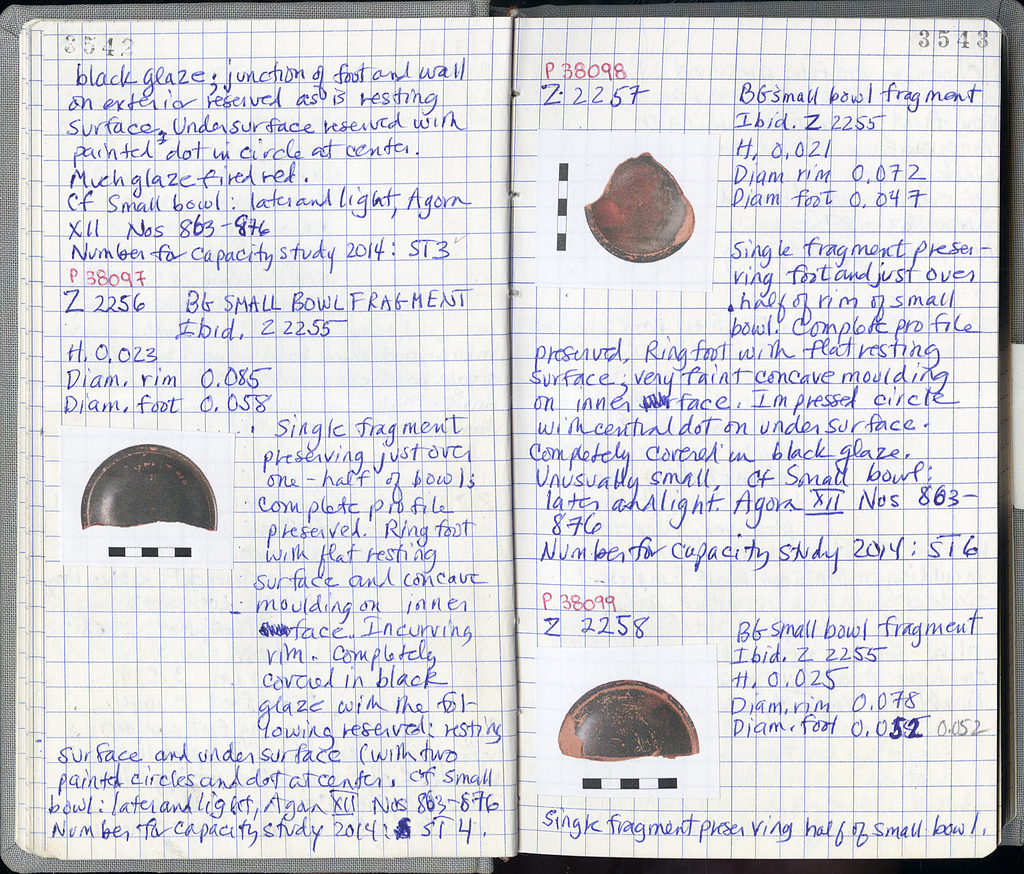 3542
black glaze; junction of foot and wall
on exterior reserved as is resting
surface. Undersurface reserved with
painted dot in circle at center.
Much glaze fired red.
Cf Small bowl: later and light, Agora
XII Nos 863-876
Number for capacity study 2014: ST3
P 38097
Z 2256 BG SMALL BOWL FRAGMENT
Ibid. Z 2255
H. 0.023
Diam. rim 0.085
Diam. foot 0.058
Single fragment
preserving just over
one-half of bowl;
complete profile
preserved. Ring foot
with flat resting
surface and concave
moulding on inner
face. Incurving
rim. Completely
covered in black
glaze with the fol-
lowing reserved: resting
surface and undersurface (with two
painted circles and dot at center. Cf Small
bowl: later and light, Agora XII Nos 863-876
Number for capacity study 2014: ST 4.
3543
P 38098
Z 2257 BG small bowl fragment
Ibid. Z 2255
H. 0.021
Diam rim 0.072
Diam foot 0.047
Single fragment preser-
ving foot and just over
half of rim of small
bowl. Complete profile
preserved. Ring foot with flat resting
surface; very faint concave moulding
on inner face. Impressed circle
with central dot on undersurface.
Completely covered in black glaze.
Unusually small. Cf Small bowl:
later and light. Agora XII Nos 863-
876
Number for capacity study 2014: ST6
P 38099
Z 2258 BG small bowl fragment
Ibid. Z 2255
H. 0.025
Diam. rim 0.078
Diam. foot 0.052 0.052
Single fragment preserving half of small bowl.